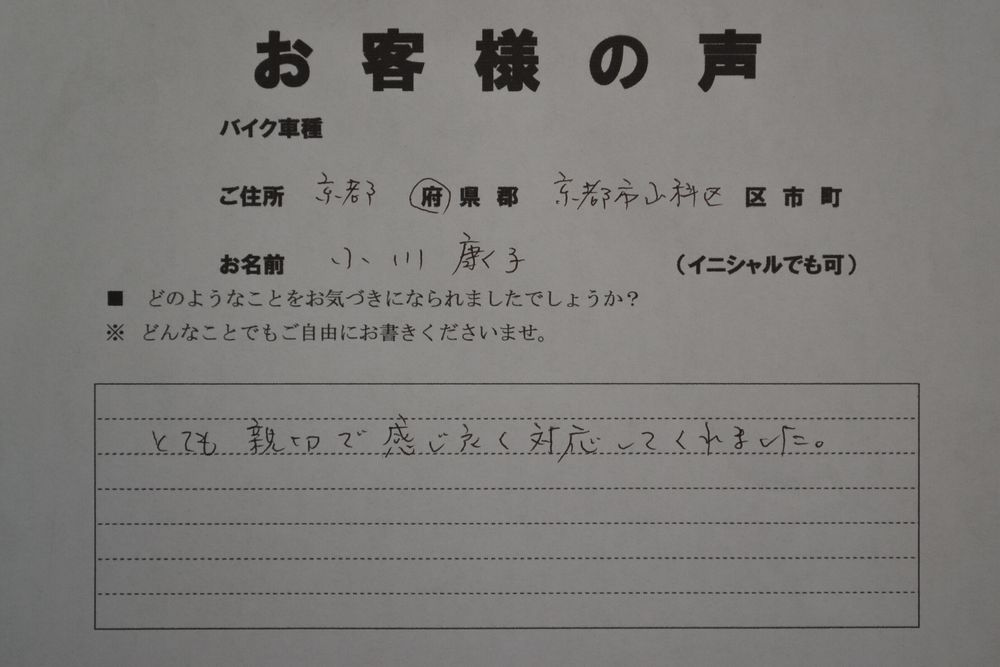 お客様の声
バイク車種
ご住所 京都 府 県 郡 京都市山科区 区 市 町
お名前 小川 康子 (イニシャルでも可)
■ どのようなことをお気づきになられましたでしょうか?
※ どんなことでもご自由にお書きくださいませ。
とても 親切で 感じ良く 対応してくれました。